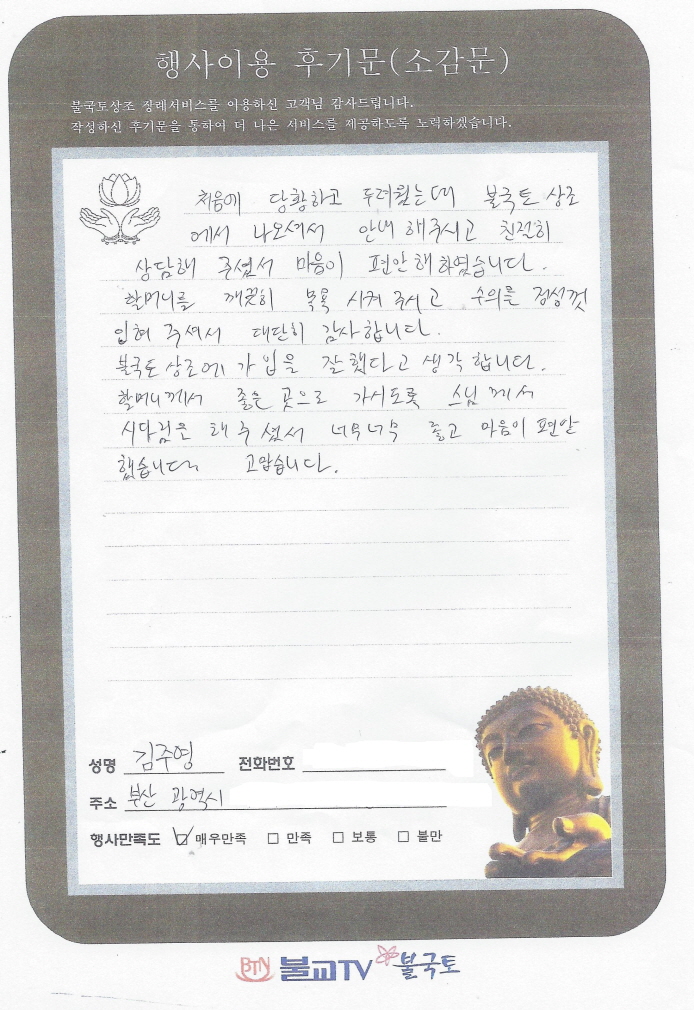 행사이용 후기문(소감문)
불국토상조 장례서비스를 이용하신 고객님 감사드립니다.
작성하신 후기문을 통하여 더 나은 서비스를 제공하도록 노력하겠습니다.
처음에 당황하고 두려웠는데 불국토 상조
에서 나오셔서 안내 해주시고 친절히
상담해 주셔서 마음이 편안해 하였습니다.
할머니를 깨끗히 목욕 시켜 주시고 수의를 정성껏
입혀 주셔서 대단히 감사합니다.
불국토 상조에 가입을 잘했다고 생각합니다.
할머니께서 좋은 곳으로 가시도록 스님께서
시다림을 해주셨서 너무너무 좋고 마음이 편안
했습니다 고맙습니다.
성명 김주영 전화번호
주소 부산 광역시
행사만족도 ☑ 매우만족 □ 만족 □ 보통 □ 불만
BTN 불교TV 불국토